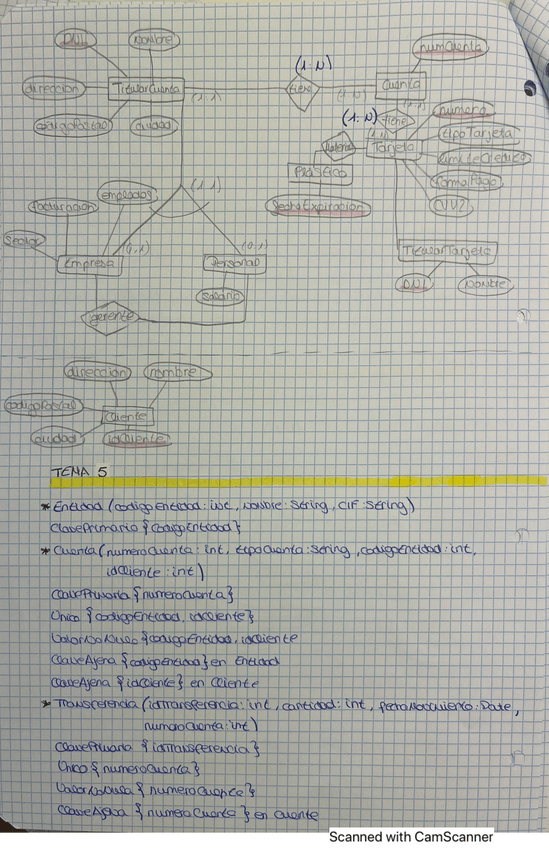 DNI
Nombre
numCuenta
dirección
TitularCuenta
(1:N)
tiene
Cuenta
(1,1)
códigoPostal
ciudad
(1:N)
tiene
numero
tipoTarjeta
Tarjeta
LimiteCredito
FormaPago
CVV2
Plástico
fechaExpiracion
(1,1)
empleados
facturacion
Sector
(0,1)
(0,1)
Empresa
Personal
TitularTarjeta
salario
DNI
Nombre
gerente
direccion
nombre
codigoPostal
Cliente
ciudad
idCliente
TEMA 5
* Entidad (codigoEntidad: int, Nombre: String, CIF: String)
ClavePrimaria {codigoEntidad}
* Cuenta (numeroCuenta: int, tipoCuenta: String, codigoEntidad: int,
idCliente: int)
ClavePrimaria {numeroCuenta}
Unico {codigoEntidad, idCliente}
ValorNoNulo {codigoEntidad, idCliente
ClaveAjena {codigoEntidad} en Entidad
ClaveAjena {idCliente} en Cliente
* Transferencia (idTransferencia: int, cantidad: int, : Date,
numeroCuenta: int)
ClavePrimaria {idTransferencia}
Unico {numeroCuenta}
ValorNoNulo {numeroCuenta}
ClaveAjena {numeroCuenta} en Cuenta
Scanned with CamScanner